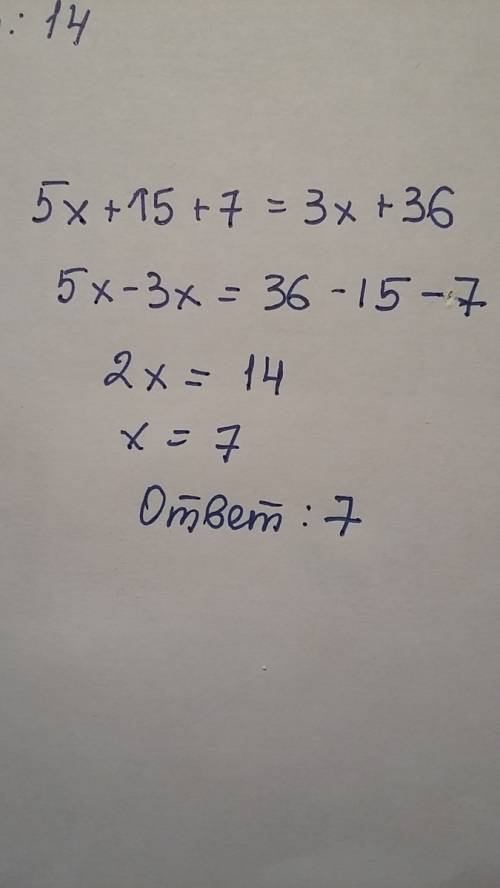 : 14
5x + 15 + 7 = 3x + 36
5x - 3x = 36 - 15 - 7
2x = 14
x = 7
Ответ : 7